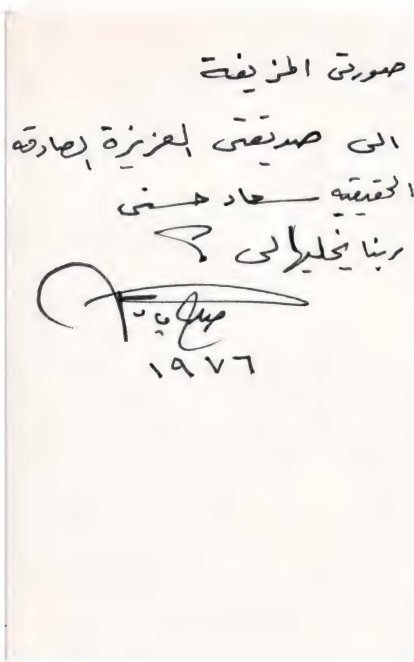 صورتى المزيفة
الى صديقتى العزيزة الصادقه
الحقيقيه سعاد حسنى
ربنا يخليهالى ؟
صلاح
١٩٧٦